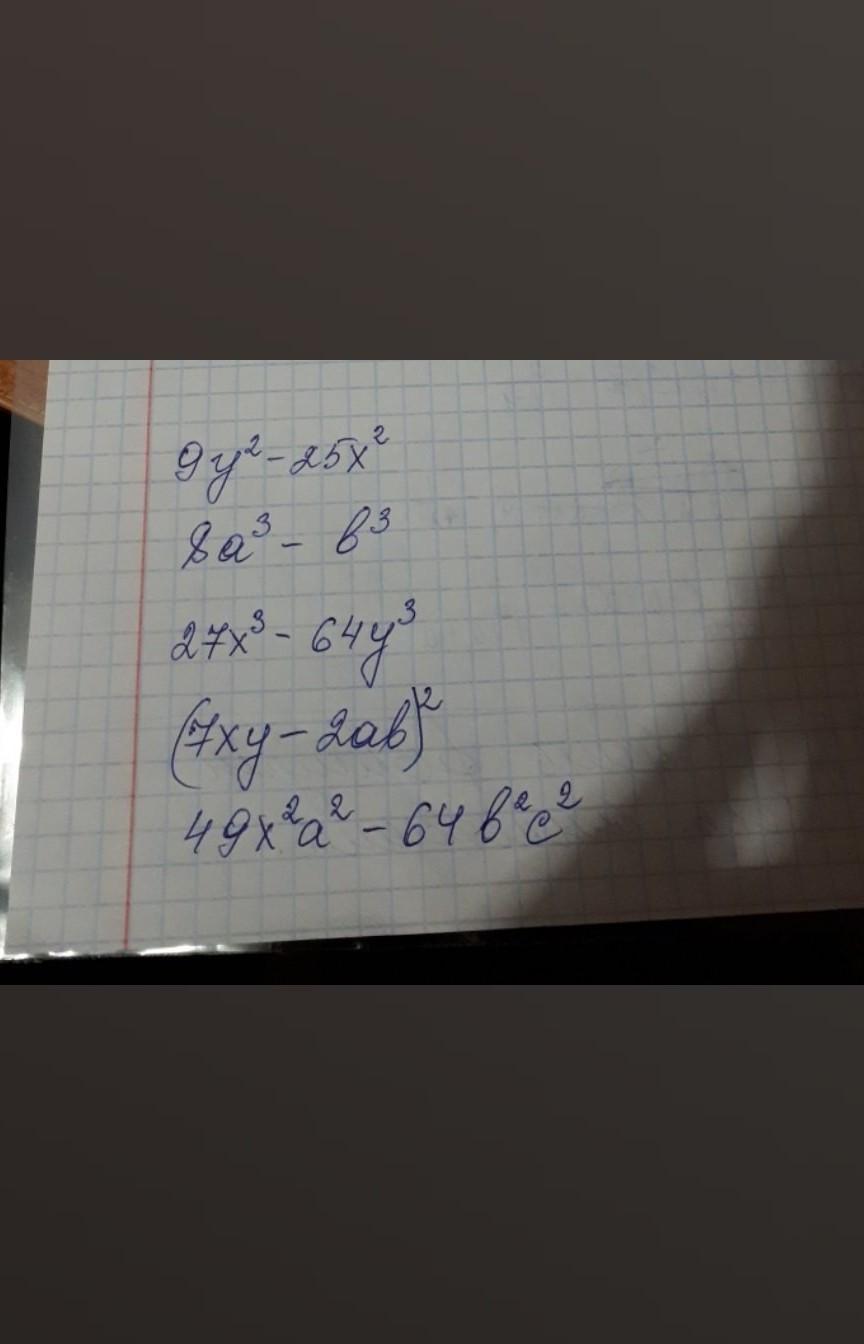 9y² - 25x²
8a³ - b³
27x³ - 64y³
(7xy - 2ab)²
49x²a² - 64b²c²